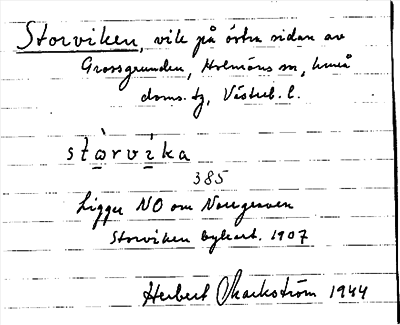 Storviken, vik på östra sidan av
Grossgrunden, Holmöns sn, Umeå
doms. tg, Västerb. l.
stòrvíka
385
Ligger NO om Noregraven
Storviken bykart. 1907
Herbert Markström 1944